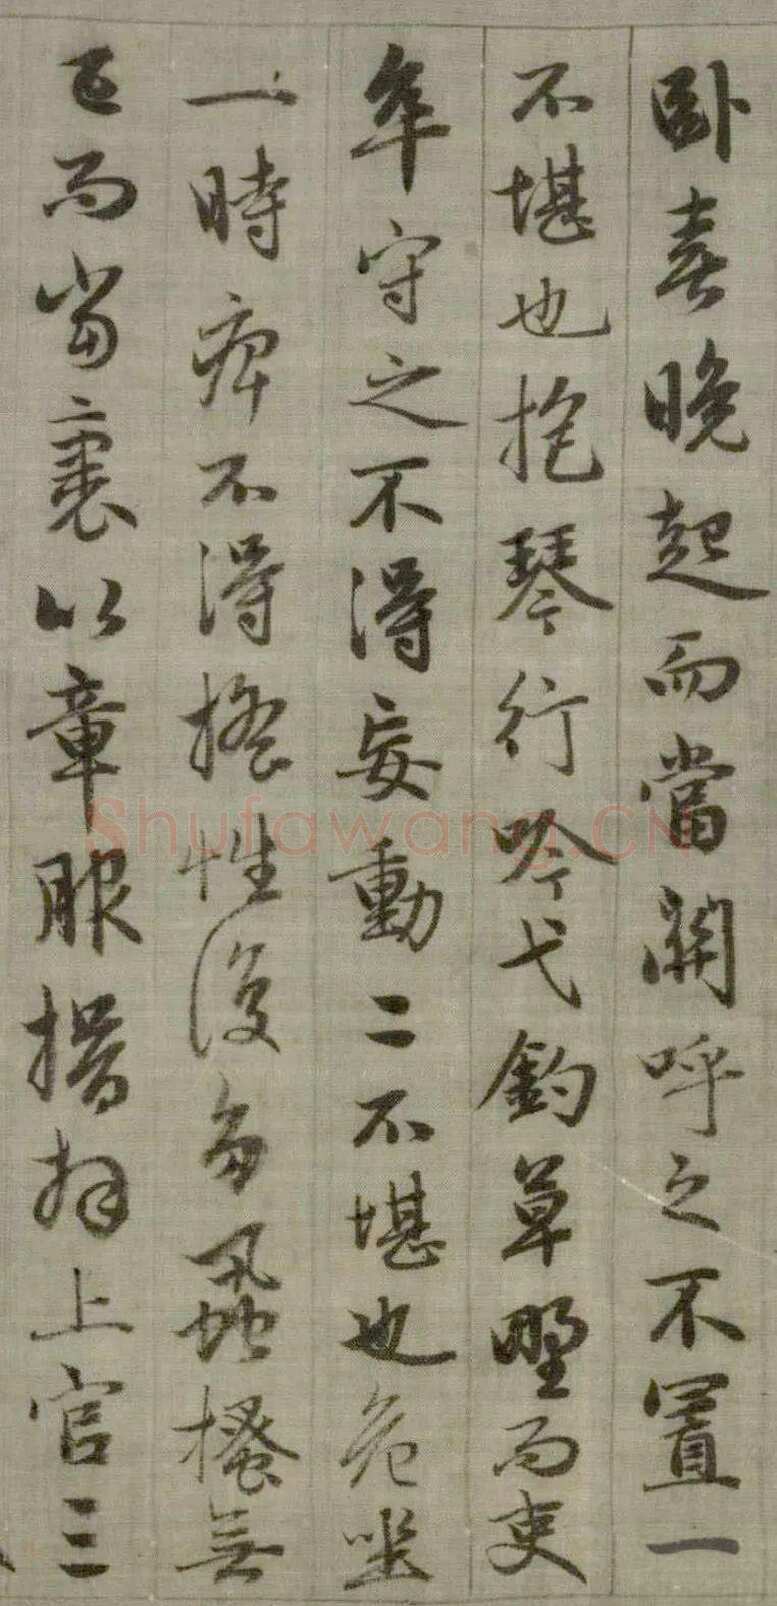 臥喜晚起而當關呼之不置一
不堪也抱琴行吟弋釣草野而吏
卒守之不得妄動二不堪也危坐
一時痺不得搖性復多蝨搔無
已而當裹以章服揖拜上官三
Shufawang.CN